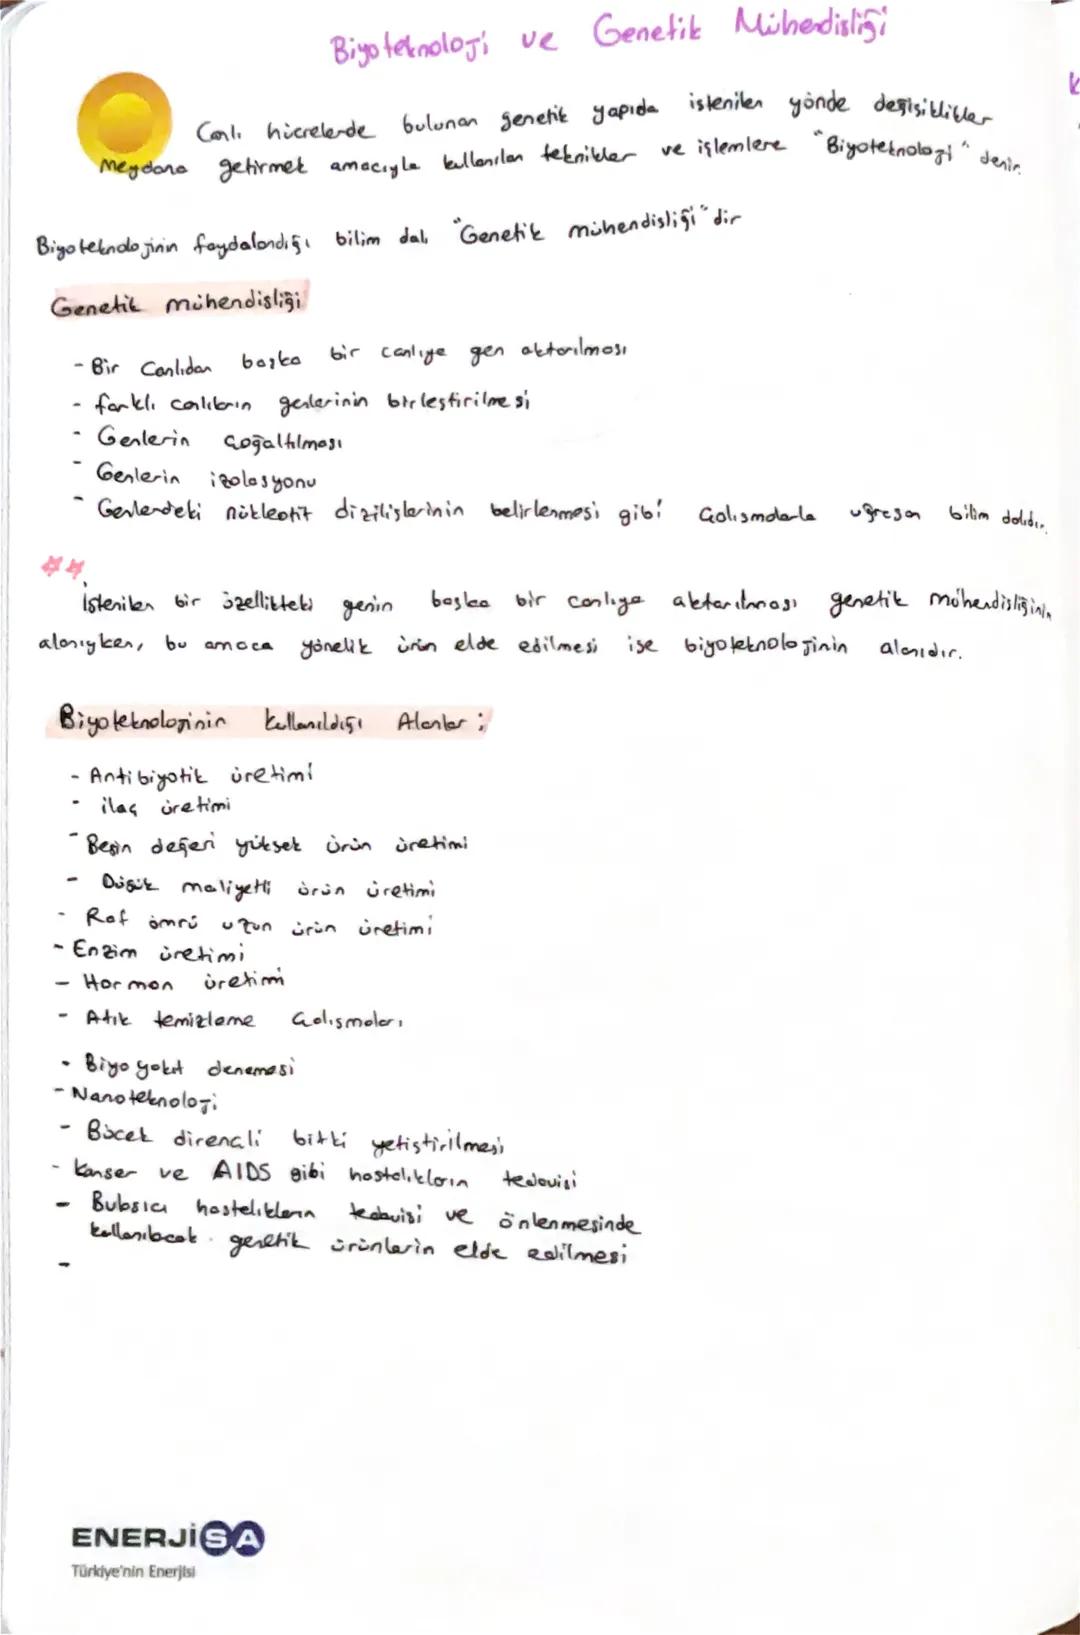 Biyoteknoloji ve Genetik Mühendisliği
Canlı hücrelerde bulunan genetik yapıda istenilen yönde değişiklikler
Meydana getirmek amacıyla kullanılan teknikler ve işlemlere "Biyoteknoloji" denir.
Biyoteknolojinin faydalandığı bilim dalı "Genetik mühendisliği" dir
Genetik mühendisliği
- Bir Canlıdan başka bir canlıya gen aktarılması
- farklı canlıların genlerinin birleştirilmesi
- Genlerin çoğaltılması
- Genlerin izolasyonu
- Genlerdeki nükleotit dizilişlerinin belirlenmesi gibi çalışmalarla uğraşan bilim dalıdır.
İstenilen bir özellikteki genin başka bir canlıya aktarılması genetik mühendisliğinin
alanıyken, bu amaca yönelik ürün elde edilmesi ise biyoteknolojinin alanıdır.
Biyoteknolojinin kullanıldığı Alanlar ;
- Antibiyotik üretimi
- ilaç üretimi
- Besin değeri yüksek ürün üretimi
- Düşük maliyetli ürün üretimi
- Raf ömrü uzun ürün üretimi
- Enzim üretimi
- Hormon üretimi
- Atık temizleme çalışmaları
- Biyo yakıt denemesi
- Nanoteknoloji
- Böcek dirençli bitki yetiştirilmesi
- Kanser ve AIDS gibi hastalıkların tedavisi
- Bulaşıcı hastalıkların tedavisi ve önlenmesinde
kullanılacak genetik ürünlerin elde edilmesi
-
ENERJİSA
Türkiye'nin Enerjisi